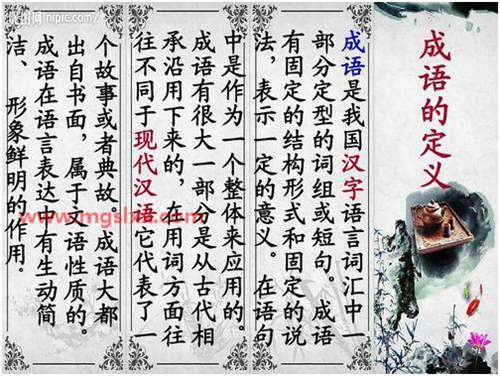 成语的定义
成语是我国汉字语言词汇中一
部分定型的词组或短句。成语
有固定的结构形式和固定的说
法，表示一定的意义。在语句
中是作为一个整体来应用的。
成语有很大一部分是从古代相
承沿用下来的，在用词方面往
往不同于现代汉语它代表了一
个故事或者典故。成语大都
出自书面，属于文语性质的。
成语在语言表达中有生动简
洁、形象鲜明的作用。